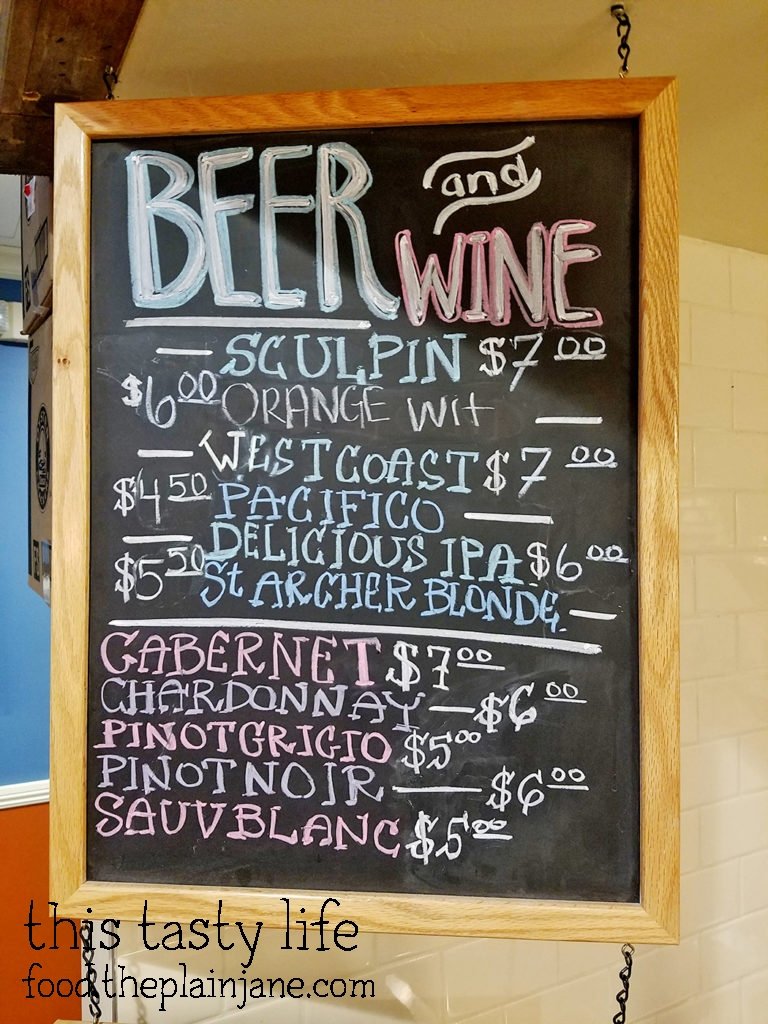 BEER and
WINE
— SCULPIN $7.00
$6.00 ORANGE WIT —
— WESTCOAST $7.00
$4.50 PACIFICO —
— DELICIOUS IPA $6.00
$5.50 St ARCHER BLONDE —
CABERNET $7.00
CHARDONNAY — $6.00
PINOT GRIGIO $5.00
PINOT NOIR — $6.00
SAUV BLANC $5.00
this tasty life
food.theplainjane.com